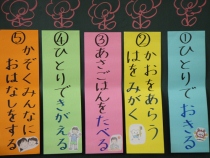 ①ひとりでおきる
②かおをあらう
はをみがく
③あさごはんをたべる
④ひとりできがえる
⑤かぞくみんなに
おはなしをする